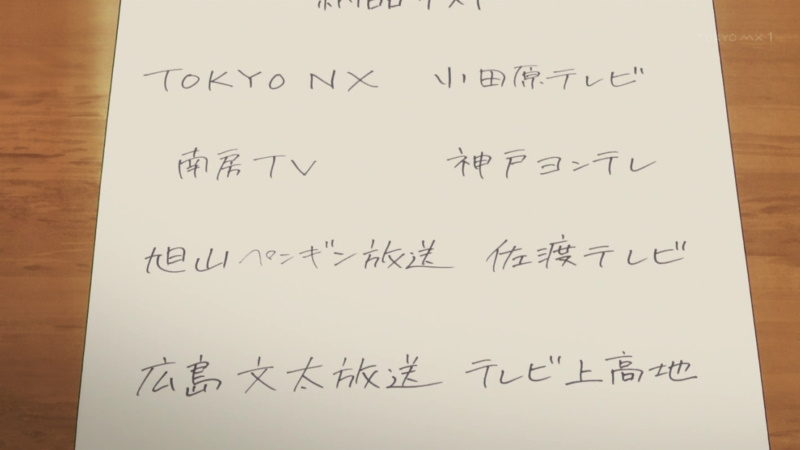 納品リスト
TOKYO MX1
TOKYO NX 小田原テレビ
南房TV 神戸ヨンテレ
旭山ペンギン放送 佐渡テレビ
広島文太放送 テレビ上高地